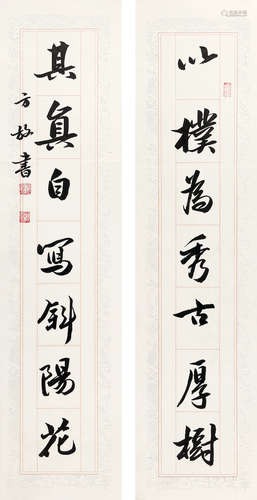 以樸為秀古厚樹
其真自寫斜陽花
方放書